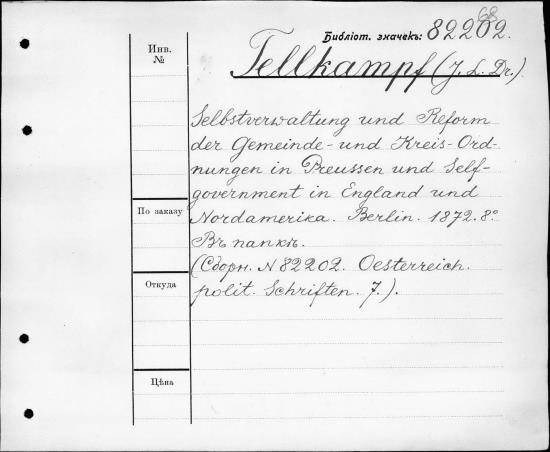 68
Библіот. значекъ: 82202.
Инв. №
Tellkampf (J. L. Dr.).
Selbstverwaltung und Reform
der Gemeinde- und Kreis-Ord-
nungen in Preussen und Self-
government in England und
По заказу
Nordamerika. Berlin. 1872. 8°
Въ папкѣ.
(Сборн. N 82202. Oesterreich.
Откуда
polit. Schriften. 7.).
Цѣна